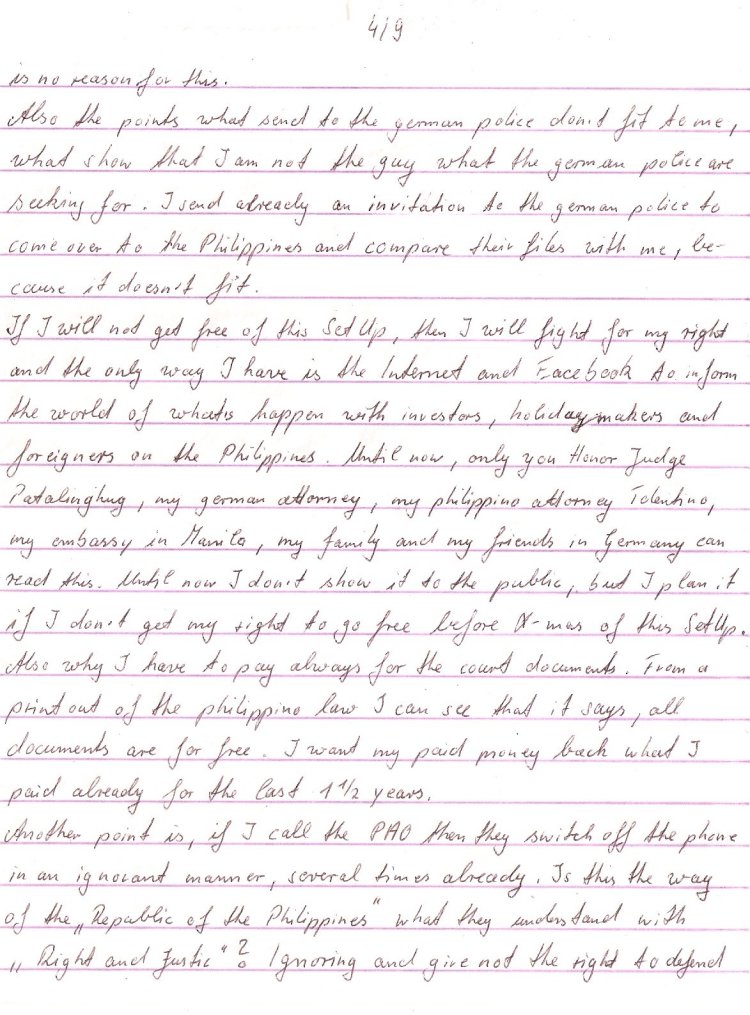 4/9
is no reason for this.
Also the points what send to the german police don't fit to me,
what show that I am not the guy what the german police are
seeking for. I send already an invitation to the german police to
come over to the Philippines and compare their files with me, be-
cause it doesn't fit.
If I will not get free of this Set Up, then I will fight for my right
and the only way I have is the Internet and Facebook to inform
the world of whats happen with investors, holidaymakers and
foreigners on the Philippines. Until now, only you Honor Judge
Patalinghug, my german attorney, my philippino attorney Tolentino,
my embassy in Manila, my family and my friends in Germany can
read this. Until now I don't show it to the public, but I plan it
if I don't get my right to go free before X-mas of this SetUp.
Also why I have to pay always for the court documents. From a
print out of the philippino law I can see that it says, all
documents are for free. I want my paid money back what I
paid already for the last 1 1/2 years.
Another point is, if I call the PAO then they switch off the phone
in an ignorant manner, several times already. Is this the way
of the „Republic of the Philippines" what they understand with
„Right and Justic"? Ignoring and give not the right to defend